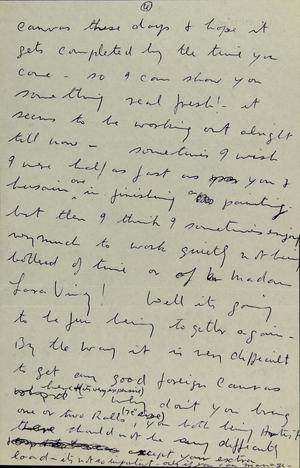 (4)
canvas these days & hope it
gets completed by the time you
come – so I can show you
something real fresh! – it
seems to be working out alright
till now – sometimes I wish
I were half as fast as you &
husain are in finishing a painting
but then I think I sometimes enjoy
very much to work quietly not being
bothered of time or of Madam
Vinq! Well its going
to be fun being together again –
By the way it is very difficult
to get any good foreign canvas
here (its very expensive)
why don't you bring
one or two Rolls, you both being
there should not be any difficulty
except your extra
load – its not so important –